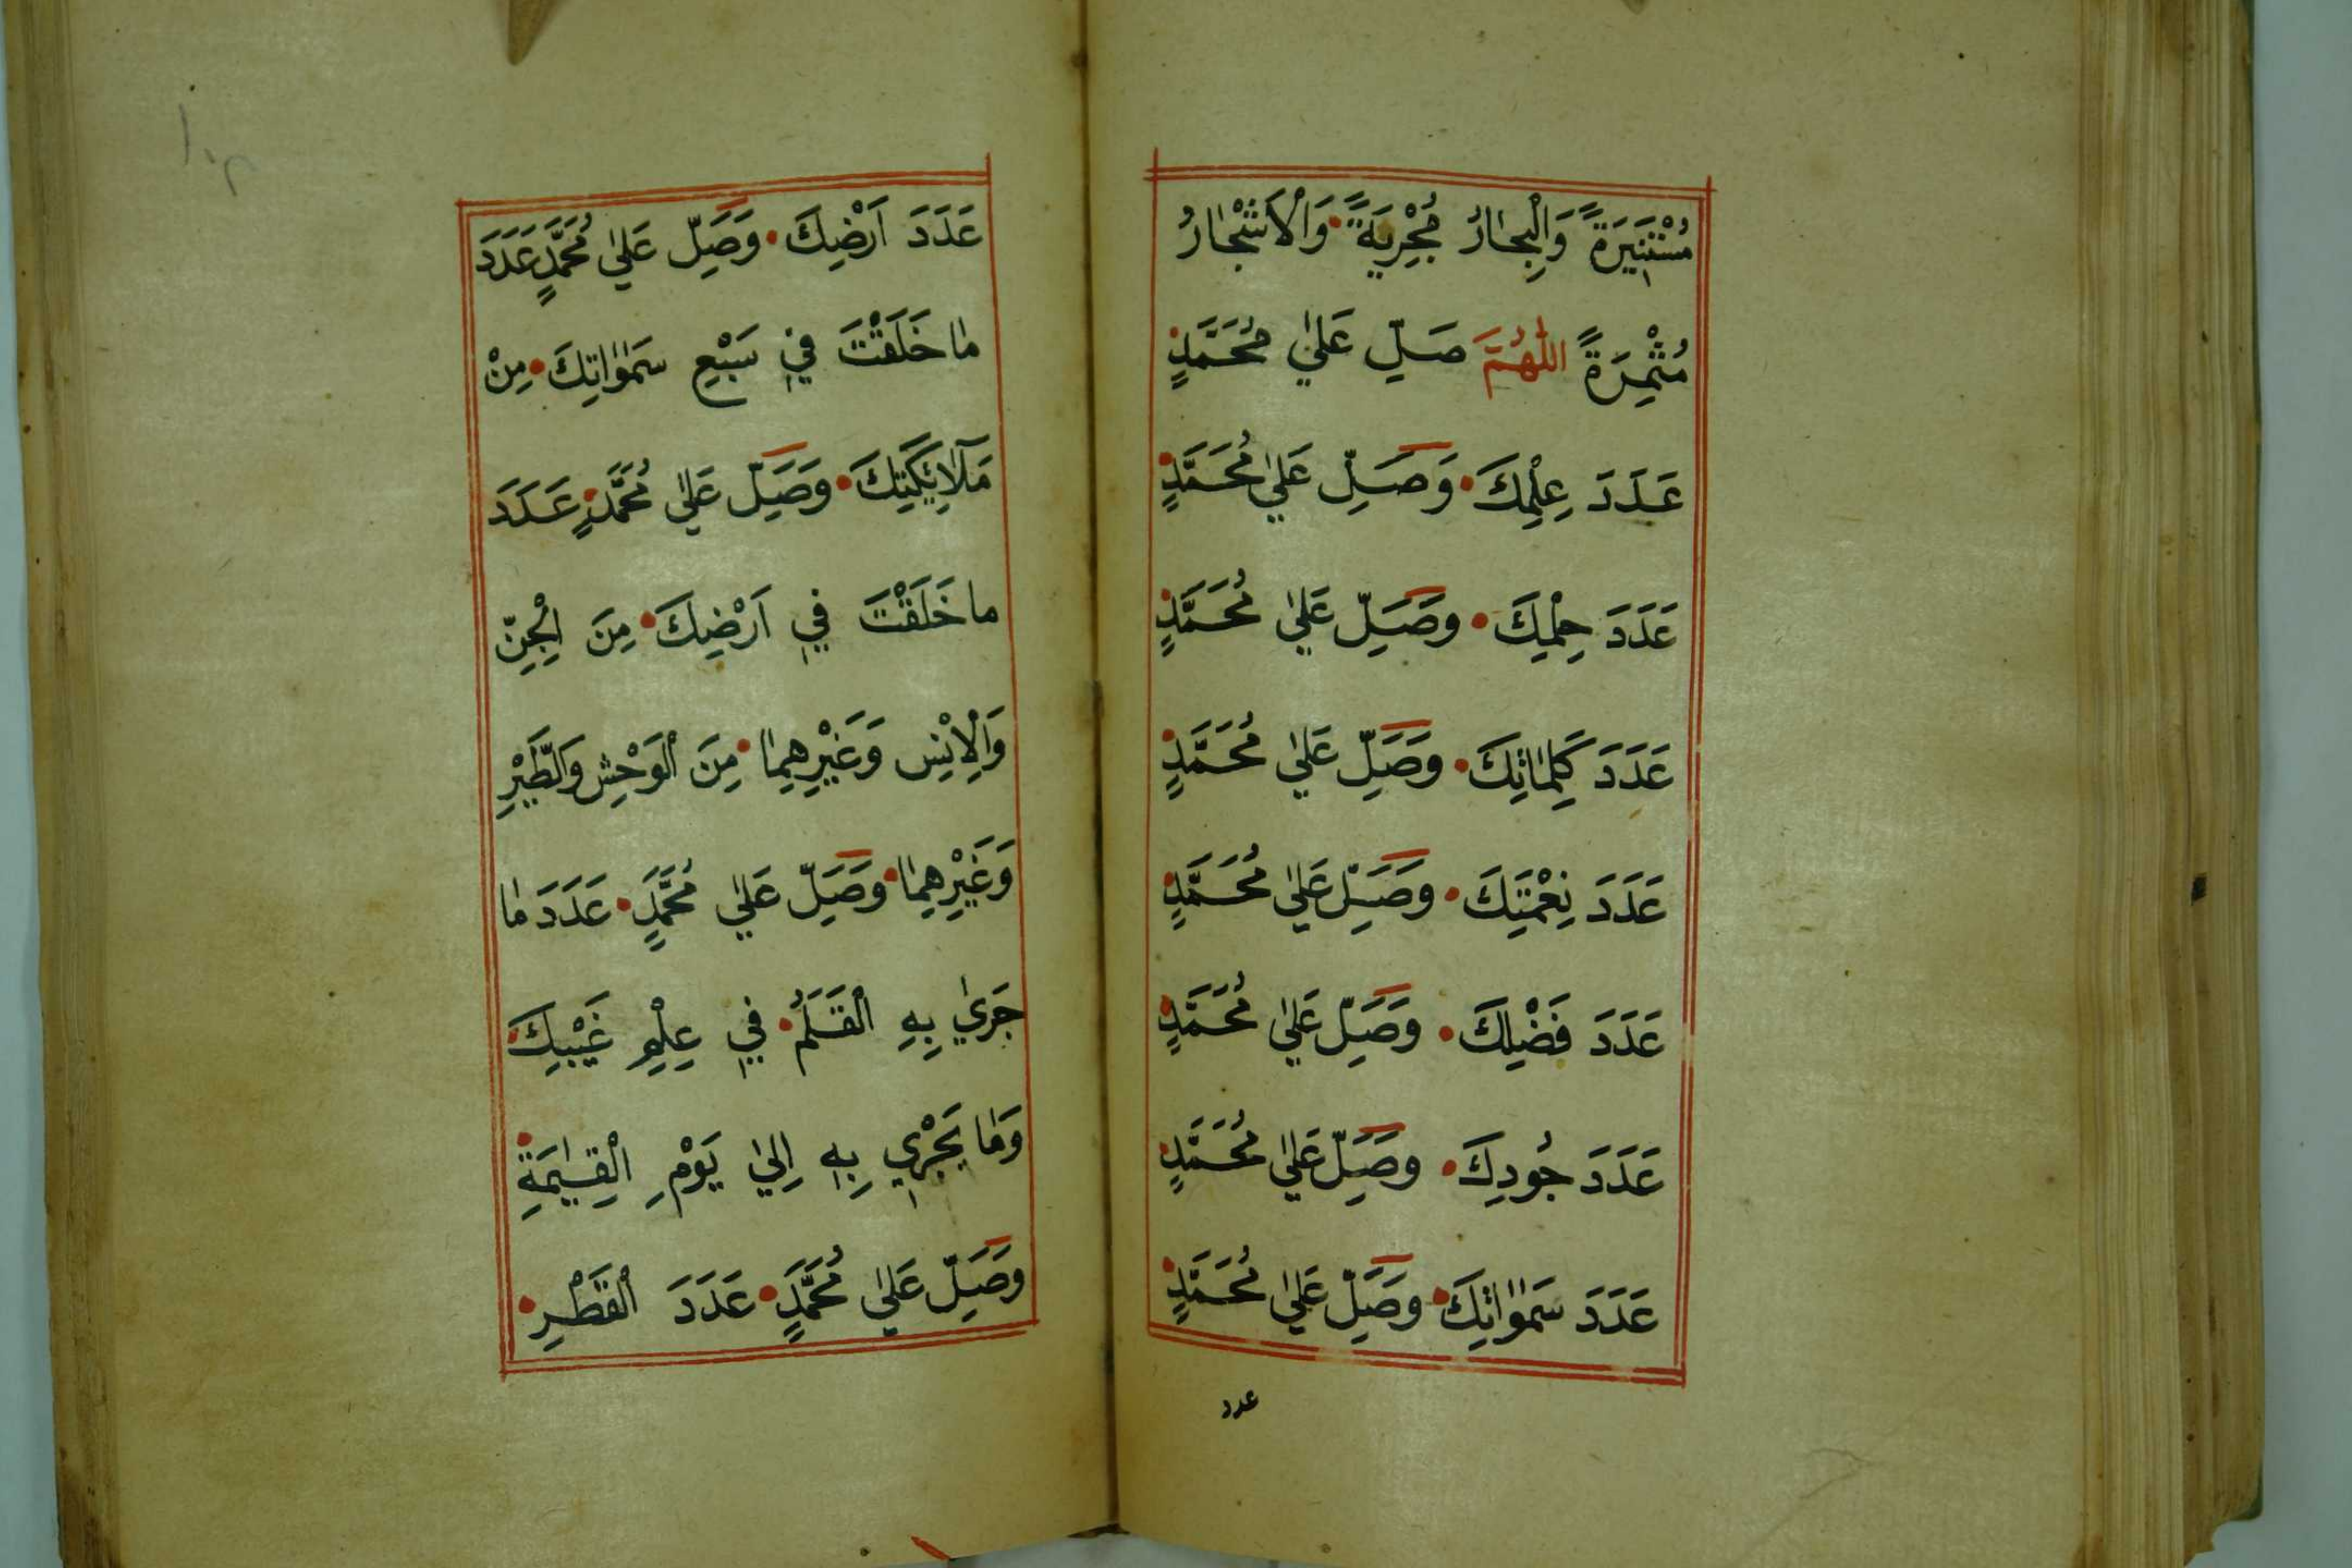 مُسْتَنِيرَةً وَالْبِحَارُ مُجْرِيَةً وَالْاَشْجَارُ
مُثْمِرَةً اَللّٰهُمَّ صَلِّ عَلٰي مُحَمَّدٍ
عَدَدَ عِلْمِكَ وَصَلِّ عَلٰي مُحَمَّدٍ
عَدَدَ حِلْمِكَ وَصَلِّ عَلٰي مُحَمَّدٍ
عَدَدَ كَلِمَاتِكَ وَصَلِّ عَلٰي مُحَمَّدٍ
عَدَدَ نِعْمَتِكَ وَصَلِّ عَلٰي مُحَمَّدٍ
عَدَدَ فَضْلِكَ وَصَلِّ عَلٰي مُحَمَّدٍ
عَدَدَ جُودِكَ وَصَلِّ عَلٰي مُحَمَّدٍ
عَدَدَ سَمٰوَاتِكَ وَصَلِّ عَلٰي مُحَمَّدٍ
عدد
١٠٣
عَدَدَ اَرْضِكَ وَصَلِّ عَلٰي مُحَمَّدٍ عَدَدَ
مَا خَلَقْتَ فِي سَبْعِ سَمٰوَاتِكَ مِنْ
مَلَآئِكَتِكَ وَصَلِّ عَلٰي مُحَمَّدٍ عَدَدَ
مَا خَلَقْتَ فِي اَرْضِكَ مِنَ الْجِنِّ
وَالْاِنْسِ وَغَيْرِهِمَا مِنَ الْوَحْشِ وَالطَّيْرِ
وَغَيْرِهِمَا وَصَلِّ عَلٰي مُحَمَّدٍ عَدَدَ مَا
جَرٰي بِهِ الْقَلَمُ فِي عِلْمِ غَيْبِكَ
وَمَا يَجْرِي بِهِ اِلٰي يَوْمِ الْقِيٰمَةِ
وَصَلِّ عَلٰي مُحَمَّدٍ عَدَدَ الْقَطْرِ